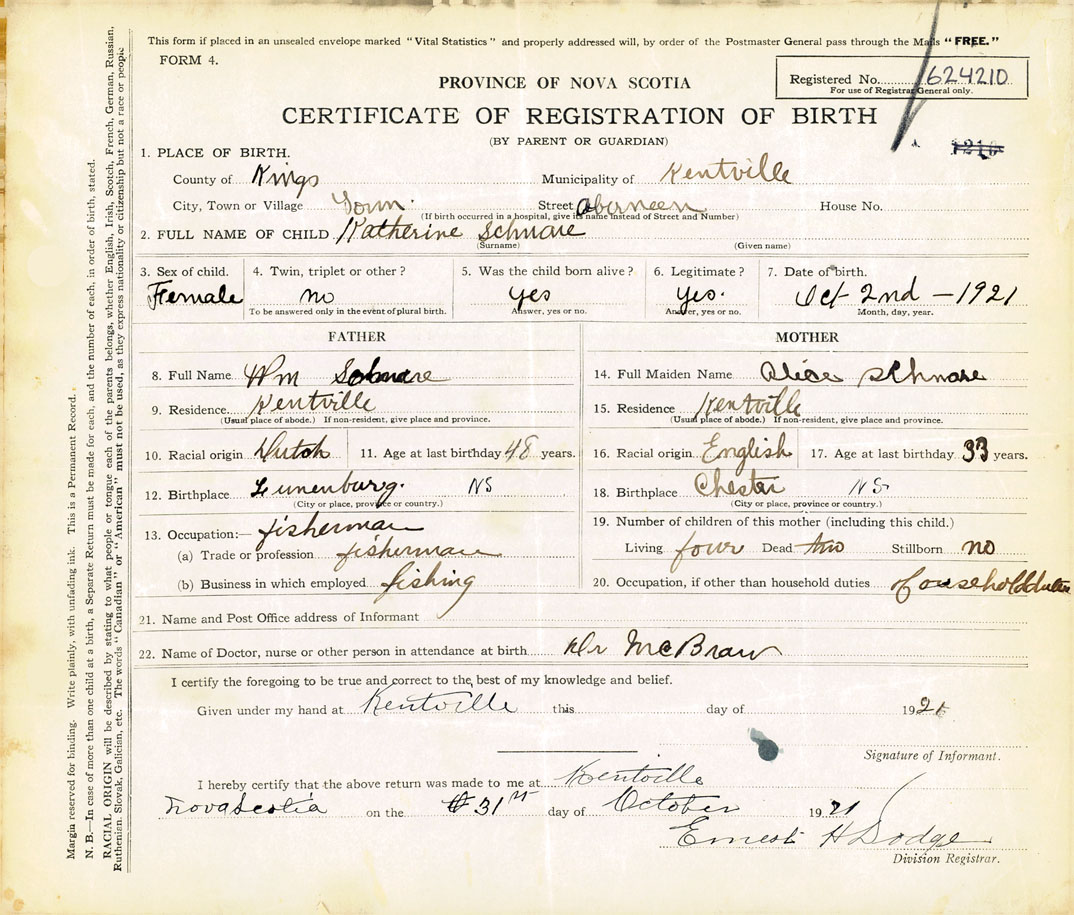 This form if placed in an unsealed envelope marked "Vital Statistics" and properly addressed will, by order of the Postmaster General pass through the Mails "FREE."
FORM 4.
PROVINCE OF NOVA SCOTIA
Registered No. 624210
For use of Registrar General only.
CERTIFICATE OF REGISTRATION OF BIRTH
(BY PARENT OR GUARDIAN)
1. PLACE OF BIRTH.
County of Kings Municipality of Kentville
City, Town or Village Town. Street Aberneen House No.
(If birth occurred in a hospital, give its name instead of Street and Number)
2. FULL NAME OF CHILD Katherine Schnare
(Surname) (Given name)
3. Sex of child. 4. Twin, triplet or other? 5. Was the child born alive? 6. Legitimate? 7. Date of birth.
Female no yes yes. Oct 2nd - 1921
To be answered only in the event of plural birth. Answer, yes or no. Answer, yes or no. Month, day, year.
FATHER
8. Full Name Wm Schnare
9. Residence Kentville
(Usual place of abode.) If non-resident, give place and province.
10. Racial origin Dutch 11. Age at last birthday 48 years.
12. Birthplace Lunenburg. NS
(City or place, province or country.)
13. Occupation:— fisherman
(a) Trade or profession fisherman
(b) Business in which employed fishing
MOTHER
14. Full Maiden Name Alice Schnare
15. Residence Kentville
(Usual place of abode.) If non-resident, give place and province.
16. Racial origin English 17. Age at last birthday 33 years.
18. Birthplace Chester NS
(City or place, province or country.)
19. Number of children of this mother (including this child.)
Living four Dead two Stillborn no
20. Occupation, if other than household duties household duties
21. Name and Post Office address of Informant
22. Name of Doctor, nurse or other person in attendance at birth Dr McBraw
I certify the foregoing to be true and correct to the best of my knowledge and belief.
Given under my hand at Kentville this day of 1921
Signature of Informant.
I hereby certify that the above return was made to me at Kentville
Nova Scotia on the 31st day of October 1921
Ernest H Dodge
Division Registrar.
Margin reserved for binding. Write plainly, with unfading ink. This is a Permanent Record.
N. B.—In case of more than one child at a birth, a Separate Return must be made for each, and the number of each, in order of birth, stated.
RACIAL ORIGIN will be described by stating to what people or tongue each of the parents belongs, whether English, Irish, Scotch, French, German, Russian,
Ruthenian. Slovak, Galician, etc. The words "Canadian" or "American" must not be used, as they express nationality or citizenship but not a race or people